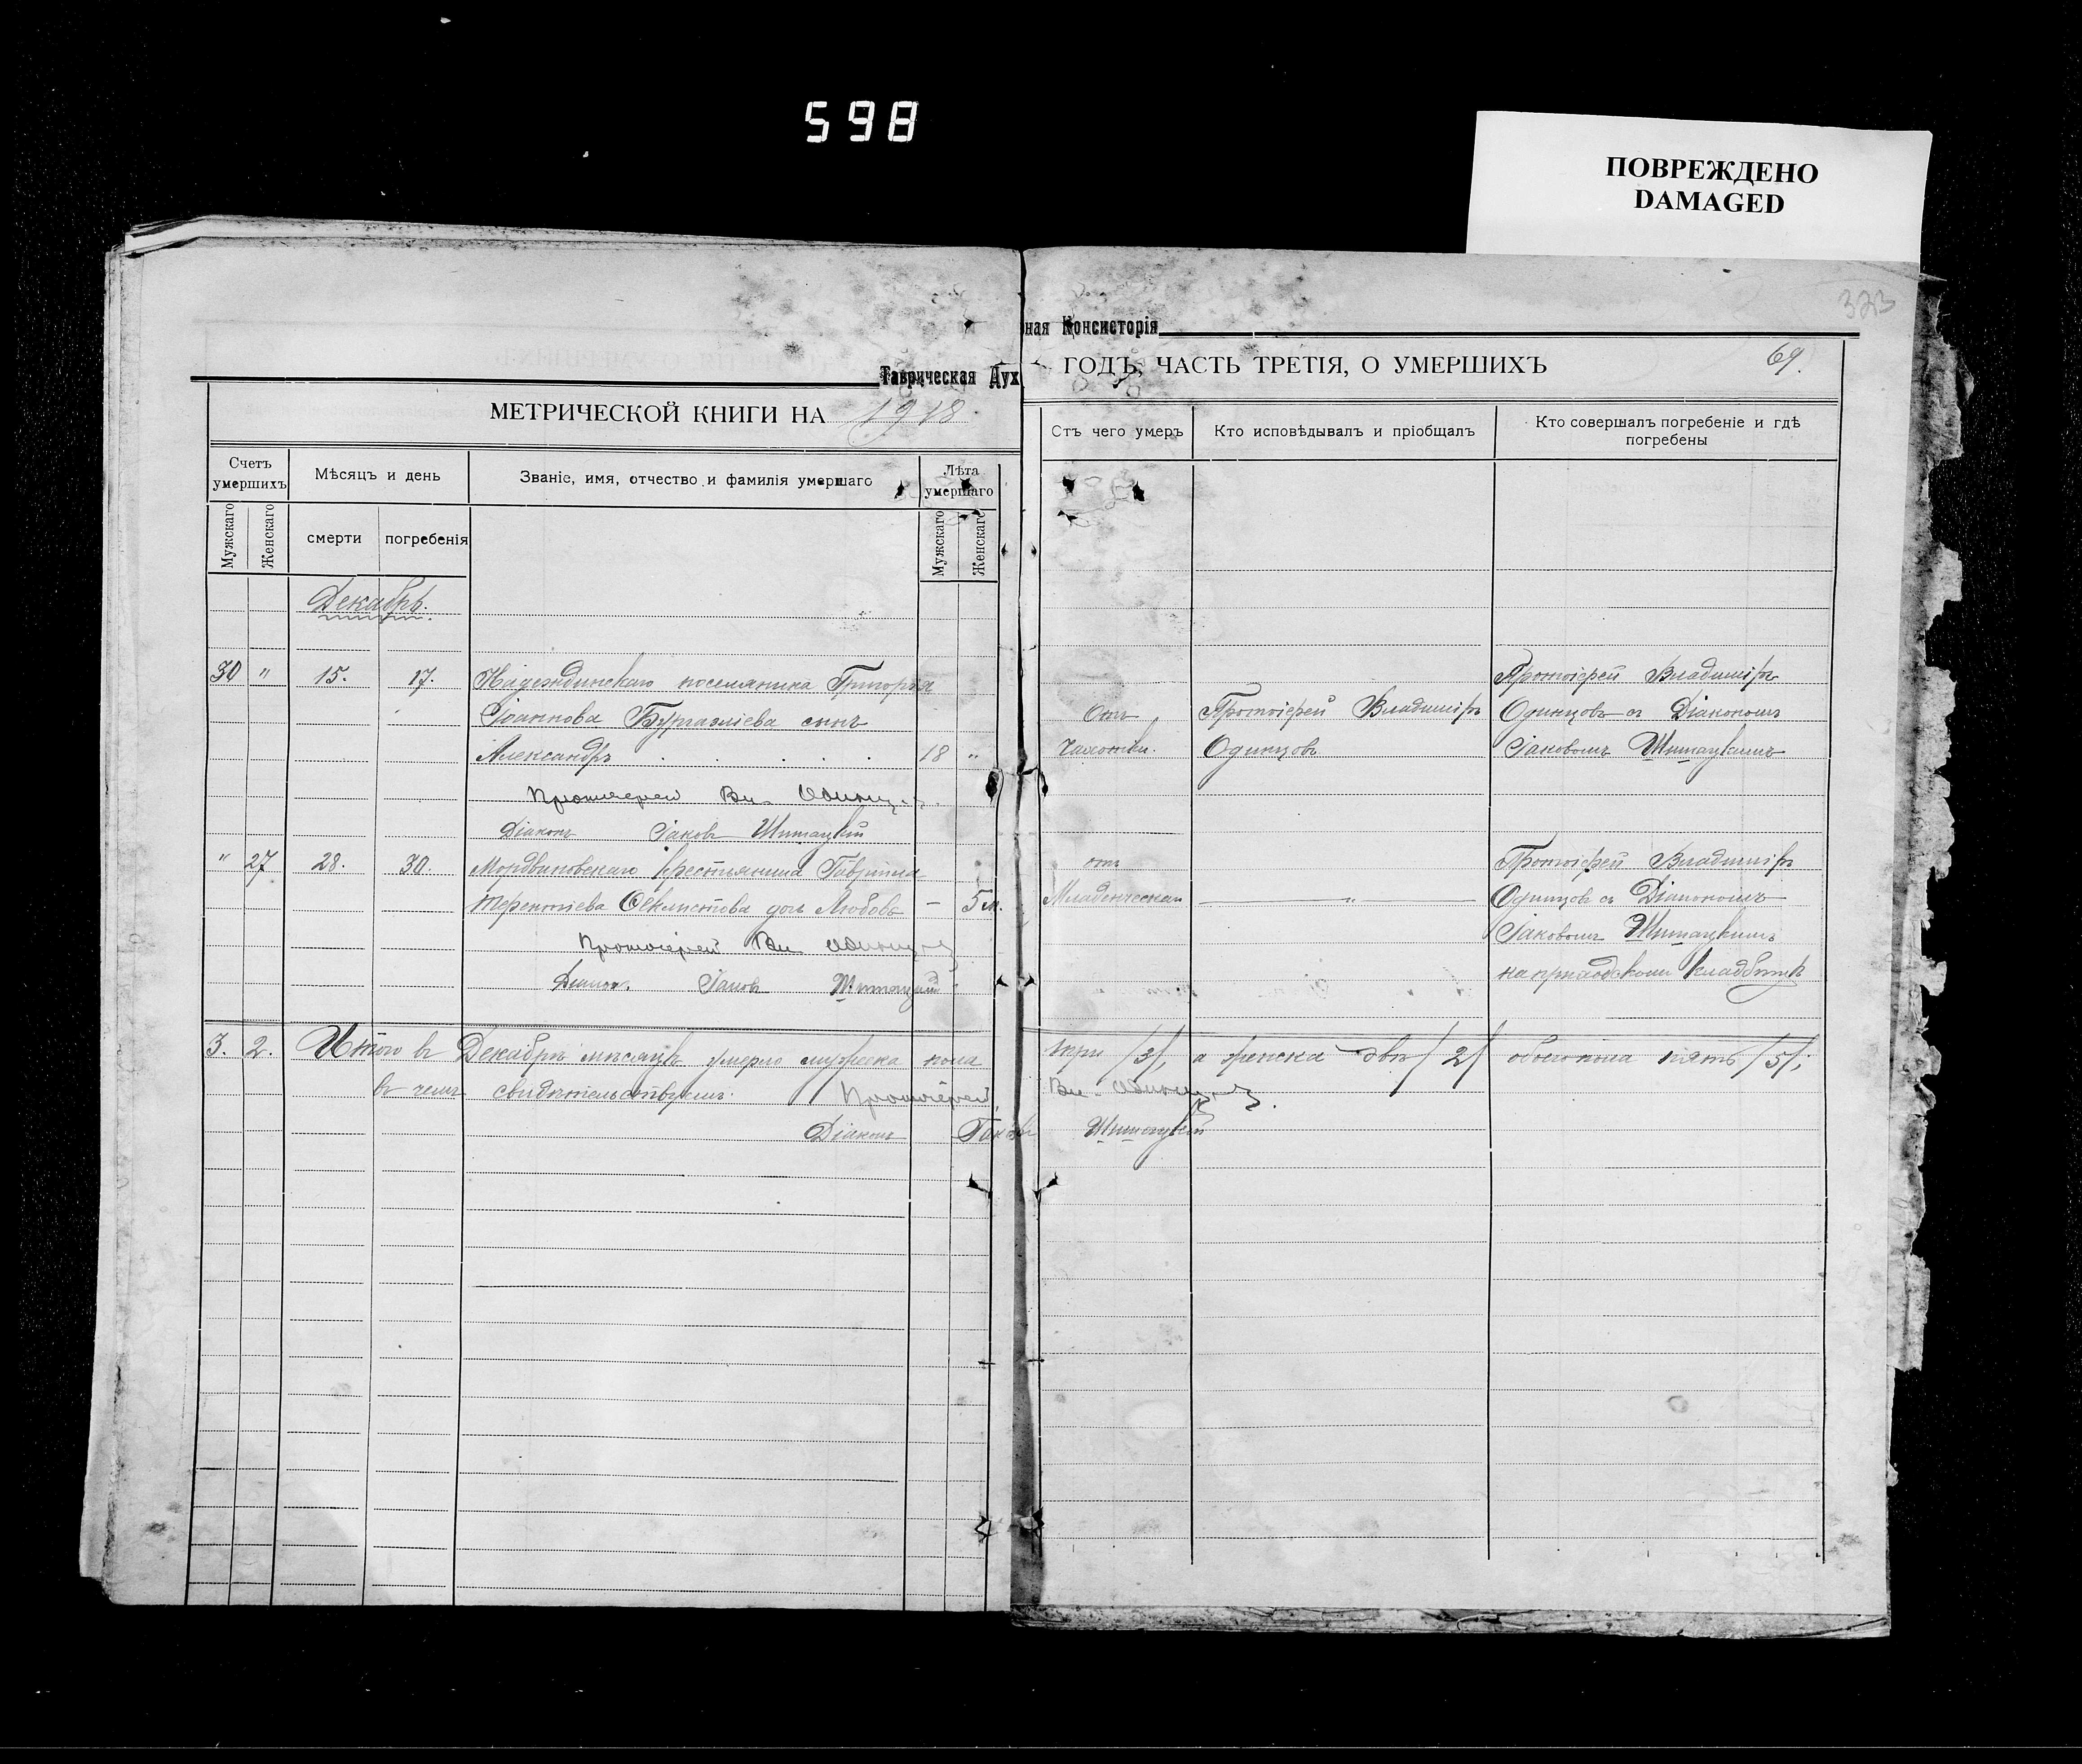 598
ПОВРЕЖДЕНО
DAMAGED
323
Таврическая Дух
МЕТРИЧЕСКОЙ КНИГИ НА 1918
Счетъ умершихъ
Мужскаго
Женскаго
Мѣсяцъ и день
смерти
погребенія
Званіе, имя, отчество и фамилія умершаго
Лѣта умершаго
Мужскаго
Женскаго
Декабрь.
30 " 15. 17. Надеждинскаго поселянина Григорія
Іоаннова сынъ
Александръ 18 "
Протоіерей Вл. Одинцовъ
Діаконъ Іаковъ Шитацкій
" 27 28. 30. Мордвиновскаго крестьянина Гавріила
Терентіева Ѳеклистова дочь Любовь – 5 м.
Протоіерей Вл. Одинцовъ
Діаконъ Іаковъ Шитацкій
3. 2. Итого въ Декабрѣ мѣсяцѣ умерло мужеска пола
въ чемъ свидѣтельствуемъ: Протоіерей
Діаконъ Іаковъ
ная Консисторія
ГОДЪ, ЧАСТЬ ТРЕТІЯ, О УМЕРШИХЪ 69.
Отъ чего умеръ
Кто исповѣдывалъ и пріобщалъ
Кто совершалъ погребеніе и гдѣ погребены
Протоіерей Владиміръ
Отъ Протоіерей Владиміръ Одинцовъ съ Діакономъ
Чахотки. Одинцовъ Іаковомъ Шитацкимъ
отъ Протоіерей Владиміръ
Младенческой " Одинцовъ съ Діакономъ
Іаковомъ Шитацкимъ
на приходскомъ кладбищѣ
три /3/, а женска двѣ /2/ обоего пола пять /5/;
Вл. Одинцовъ.
Шитацкій